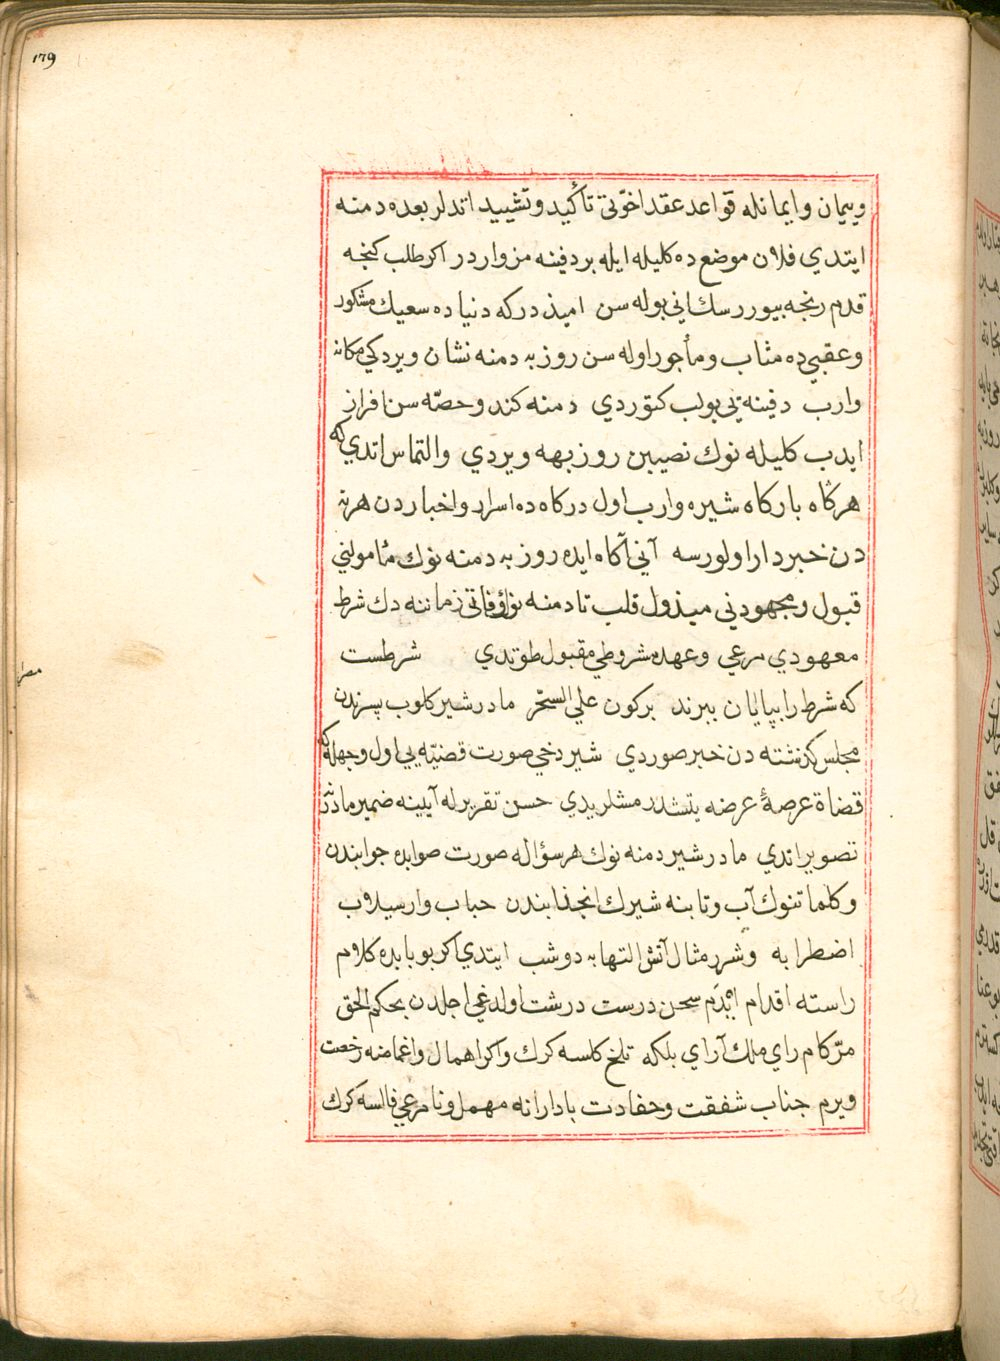 ١٦٩
وپیمان وایمانله قواعد عقد اخوّتی تأكید وتشیید اتدلر بعده دمنه
ایتدی فلان موضع ده كلیله ایله بر دفینه مز واردر اكر طلب كنجه
قدم رنجه بیوررسك انی بوله سن امیذدركه دنیا ده سعیك مشكور
وعقبی ده مثاب ومأجور اوله سن روزبه دمنه نشان ویردكی مكانه
وارب دفینه یی بولب كتوردی دمنه كندو حصّه سن افراز
ایدب كلیله نوك نصیبین روزبهه ویردی والتماس اتدی كه
هركاه باركاه شیره وارب اول دركاه ده اسرار واخباردن هر نه
دن خبردار اولورسه آنی آكاه ایده روزبه دمنه نوك مأمولنی
قبول ومجهودنی مبذول قلب تا دمنه نوك وفاتی زماننه دك شرط
معهودی مرعی وعهد مشروطی مقبول طوتدی شرطست
كه شرط را بپایان ببرند بركون علی السحّر مادر شیر كلوب پسرندن
مجلس كذشته دن خبر صوردی شیر دخی صورت قضیّه یی اول وجهله كه
قضاة عرصهٔ عرضه یتشدرمشلریدی حسن تقریرله آیینه ضمیر مادرٔه
تصویر اتدی مادر شیر دمنه نوك هر سؤاله صورت صوابده جوابندن
وكلماتنوك آب وتابنه شیرك انجذابندن حباب وار سیلاب
اضطرابه وشرر مثال آتش التهابه دوشب ایتدی اكر بو بابده كلام
راسته اقدام ایدَم سخن درست درشت اولدغی اجلدن بحكم الحق
مرّ كام رای ملك آرای بلكه تلخ كلسه كرك واكر اهمال واغماضه رخصت
ویرم جناب شفقت وحفادت بادارانه مهمل ونا مرعی قالسه كرك